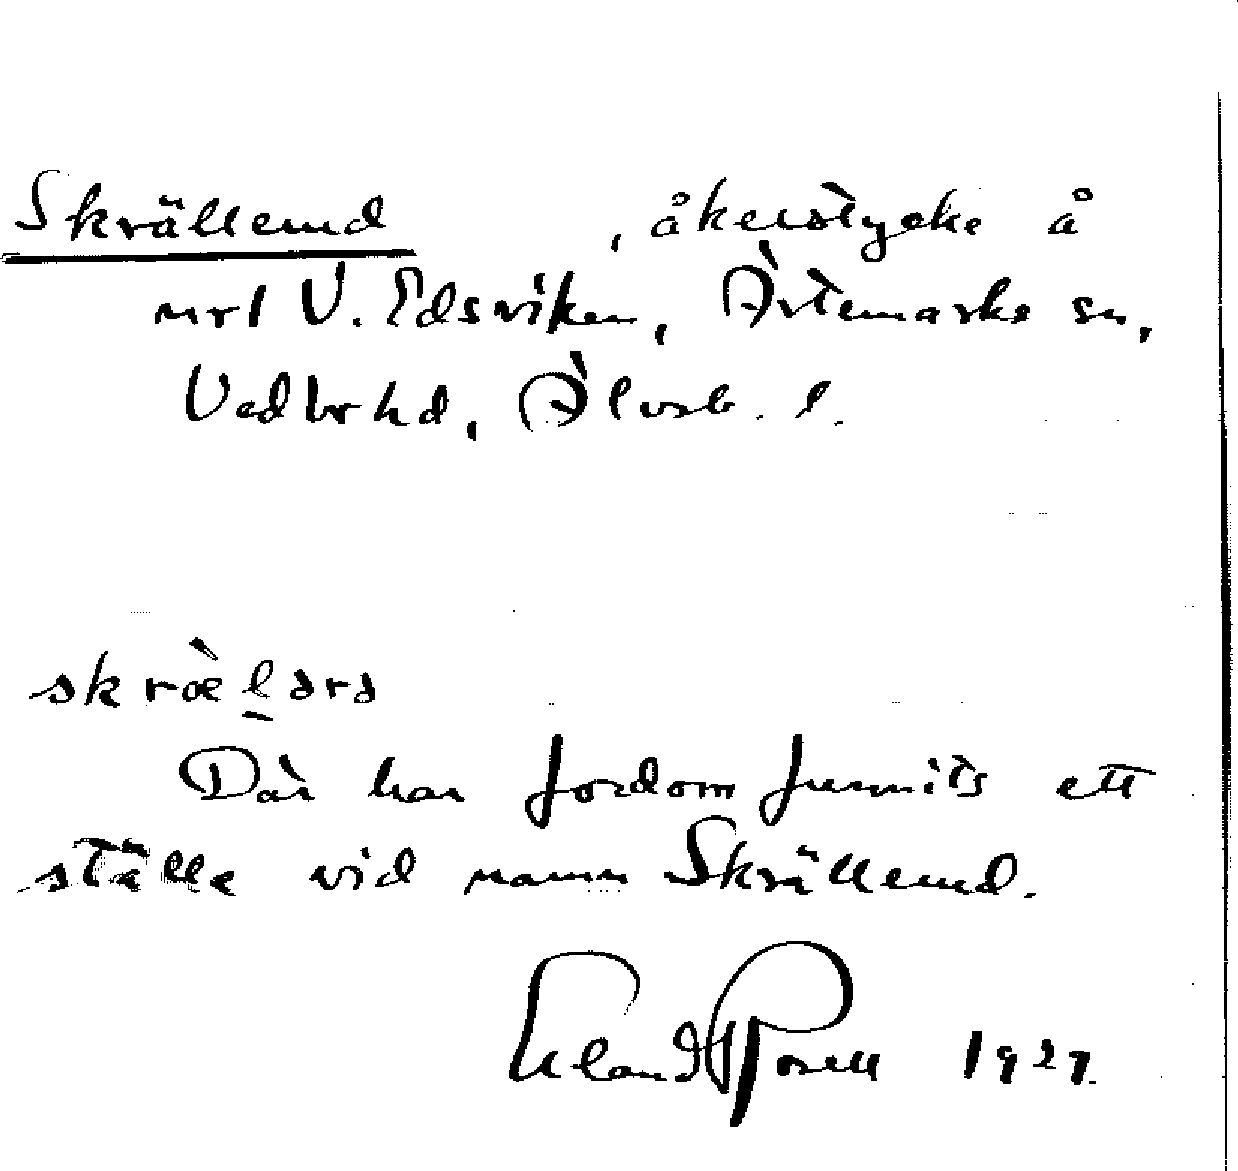 Skrällerud , åkerstycke å
nr 1 V. Edsviken, Ärtemarks sn,
Vedbo hd, Älvsb. l.
skræ̀l̠ərə
Där har fordom funnits ett
ställe vid namn Skrällerud.
Erland Rosell 1927.